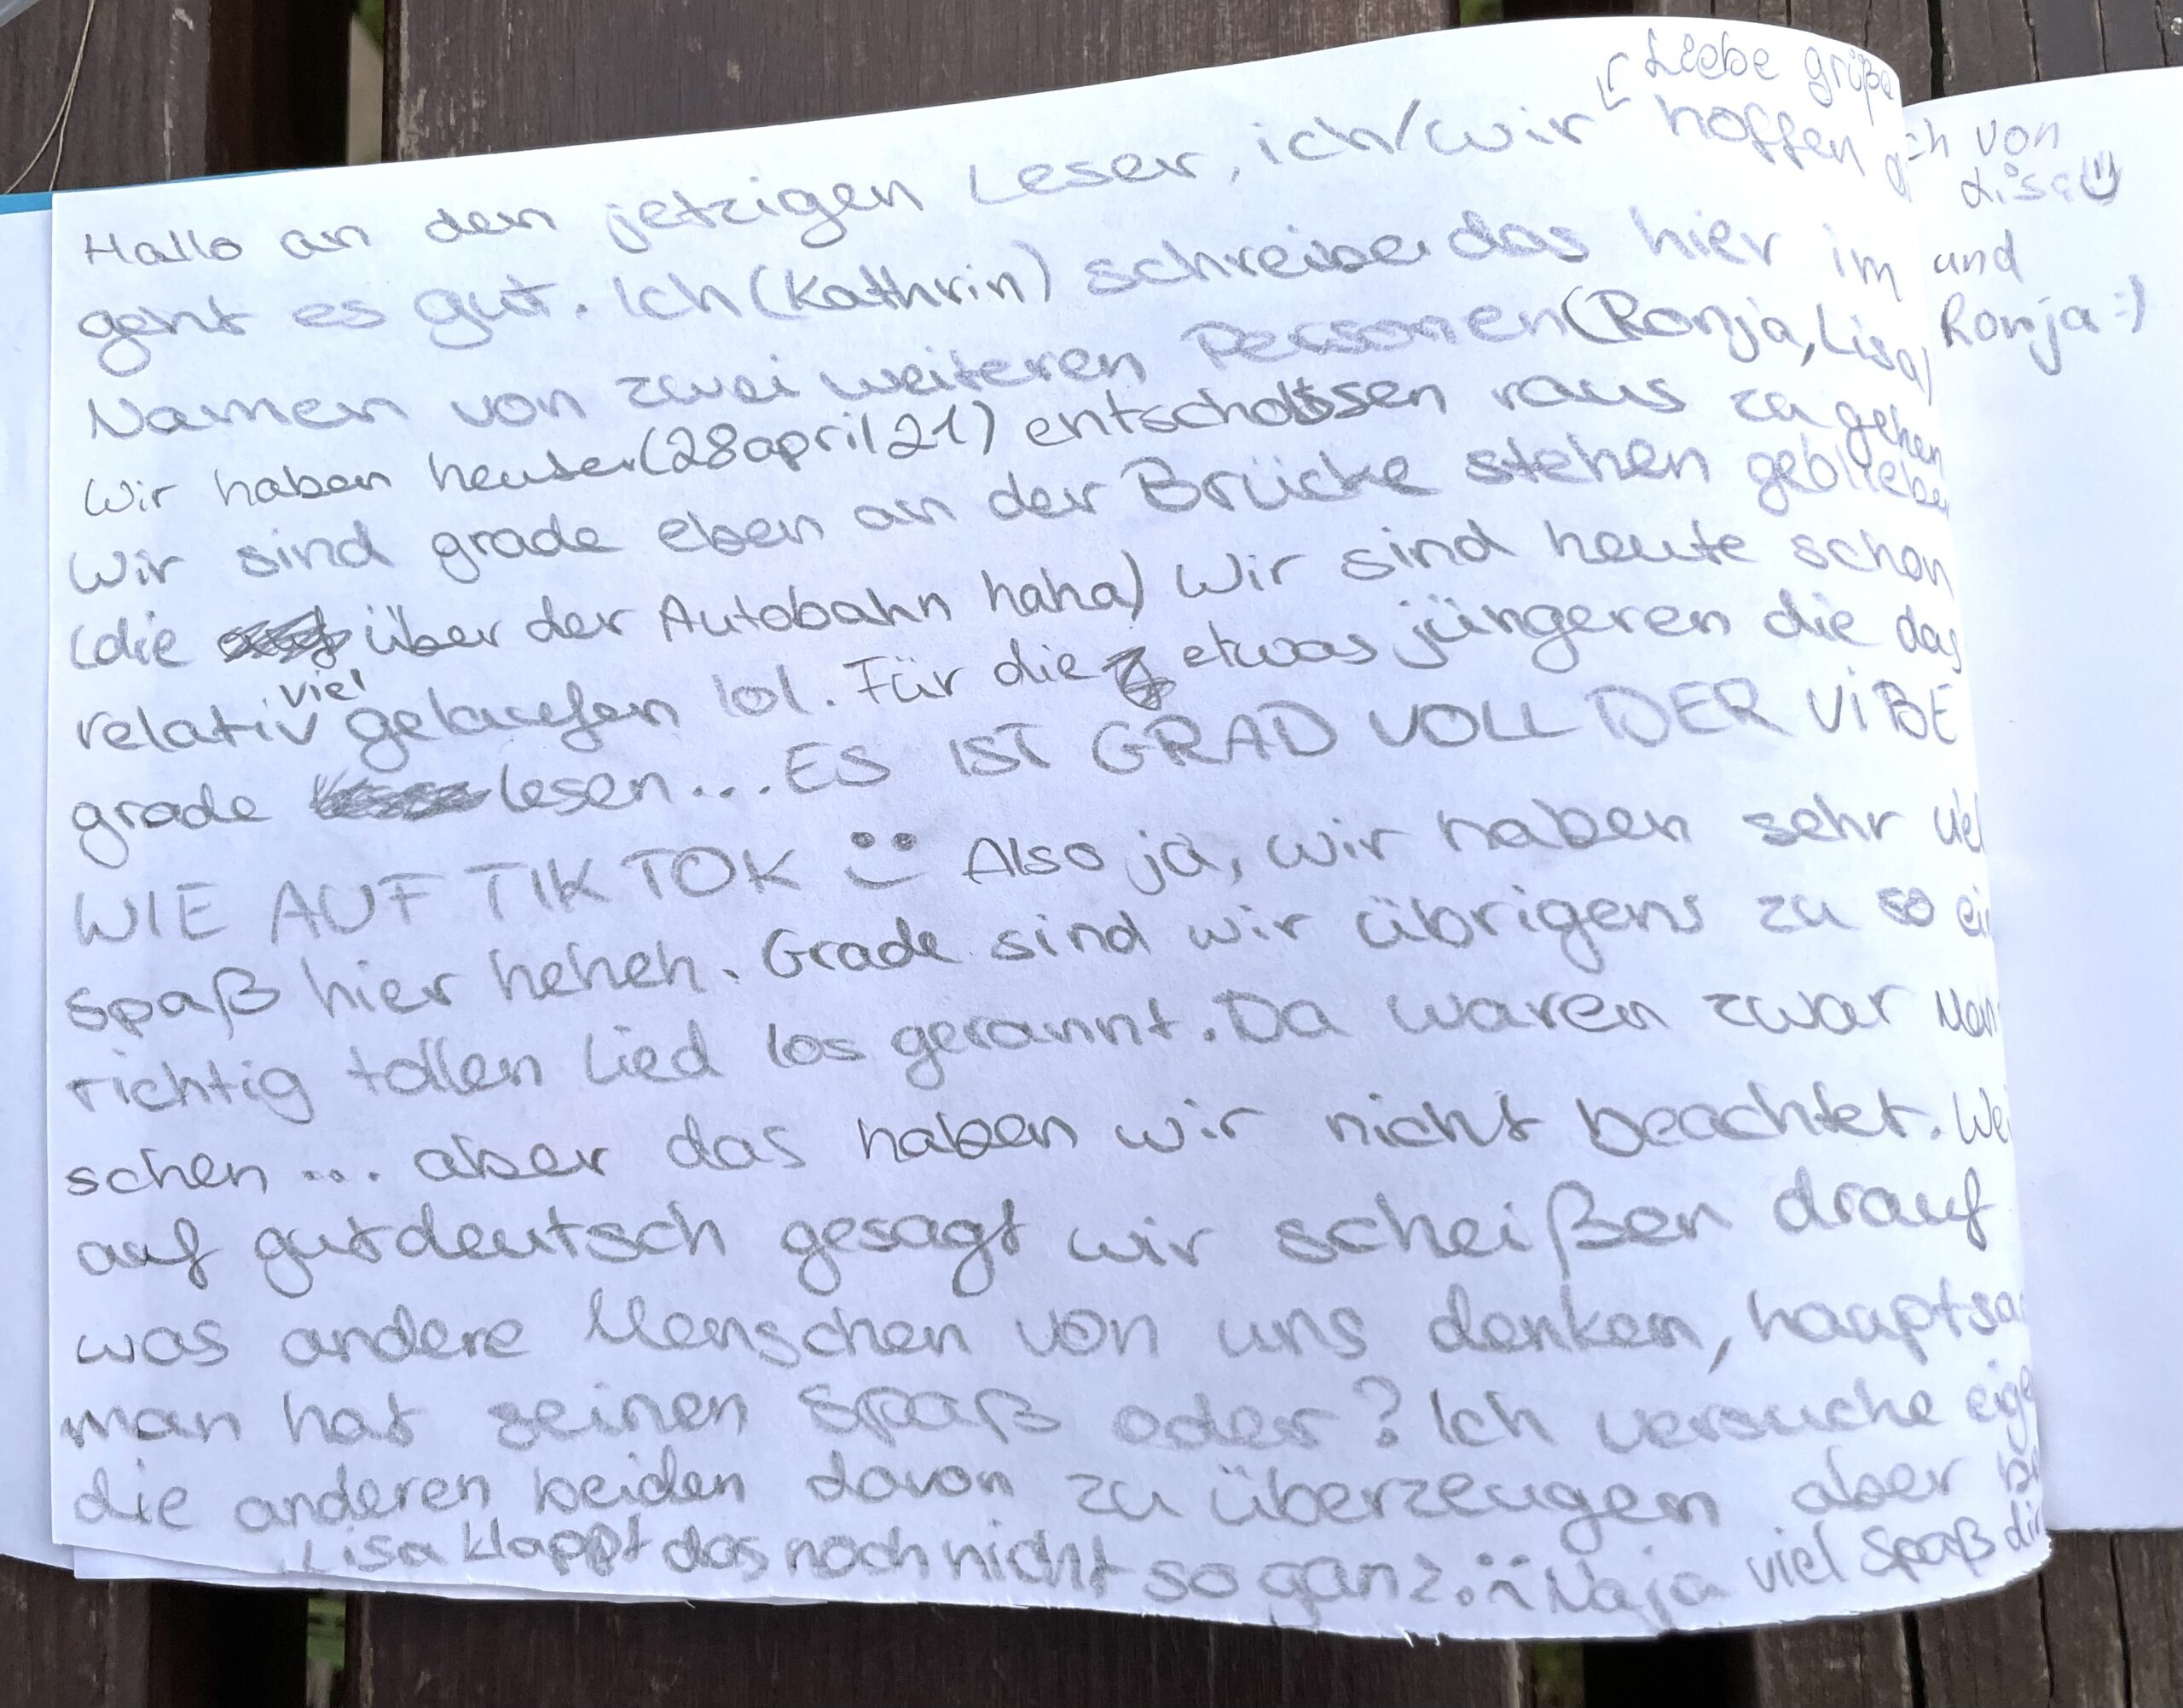 Liebe grüße
ch von
Lisa
und
Ronja :)
Hallo an den jetzigen Leser, ich/wir hoffen d
geht es gut. Ich (Kathrin) schreibe das hier im
Namen von zwei weiteren Personen (Ronja, Lisa)
Wir haben heute (28 april 21) entschossen raus zu gehen
Wir sind grade eben an der Brücke stehen gebliebe
(die über der Autobahn haha) Wir sind heute schon
relativ viel gelaufen lol. Für die etwas jüngeren die das
grade lesen... ES IST GRAD VOLL DER VIBE
WIE AUF TIK TOK Also ja, wir haben sehr viel
spaß hier heheh. Grade sind wir übrigens zu so ei
richtig tollen Lied los gerannt. Da waren zwar Men
schen ... aber das haben wir nicht beachtet. We
auf gutdeutsch gesagt wir scheißen drauf
was andere Menschen von uns denken, hauptsa
man hat seinen Spaß oder? Ich versuche eige
die anderen beiden davon zu überzeugen aber be
Lisa klappt das noch nicht so ganz. Naja viel Spaß dir